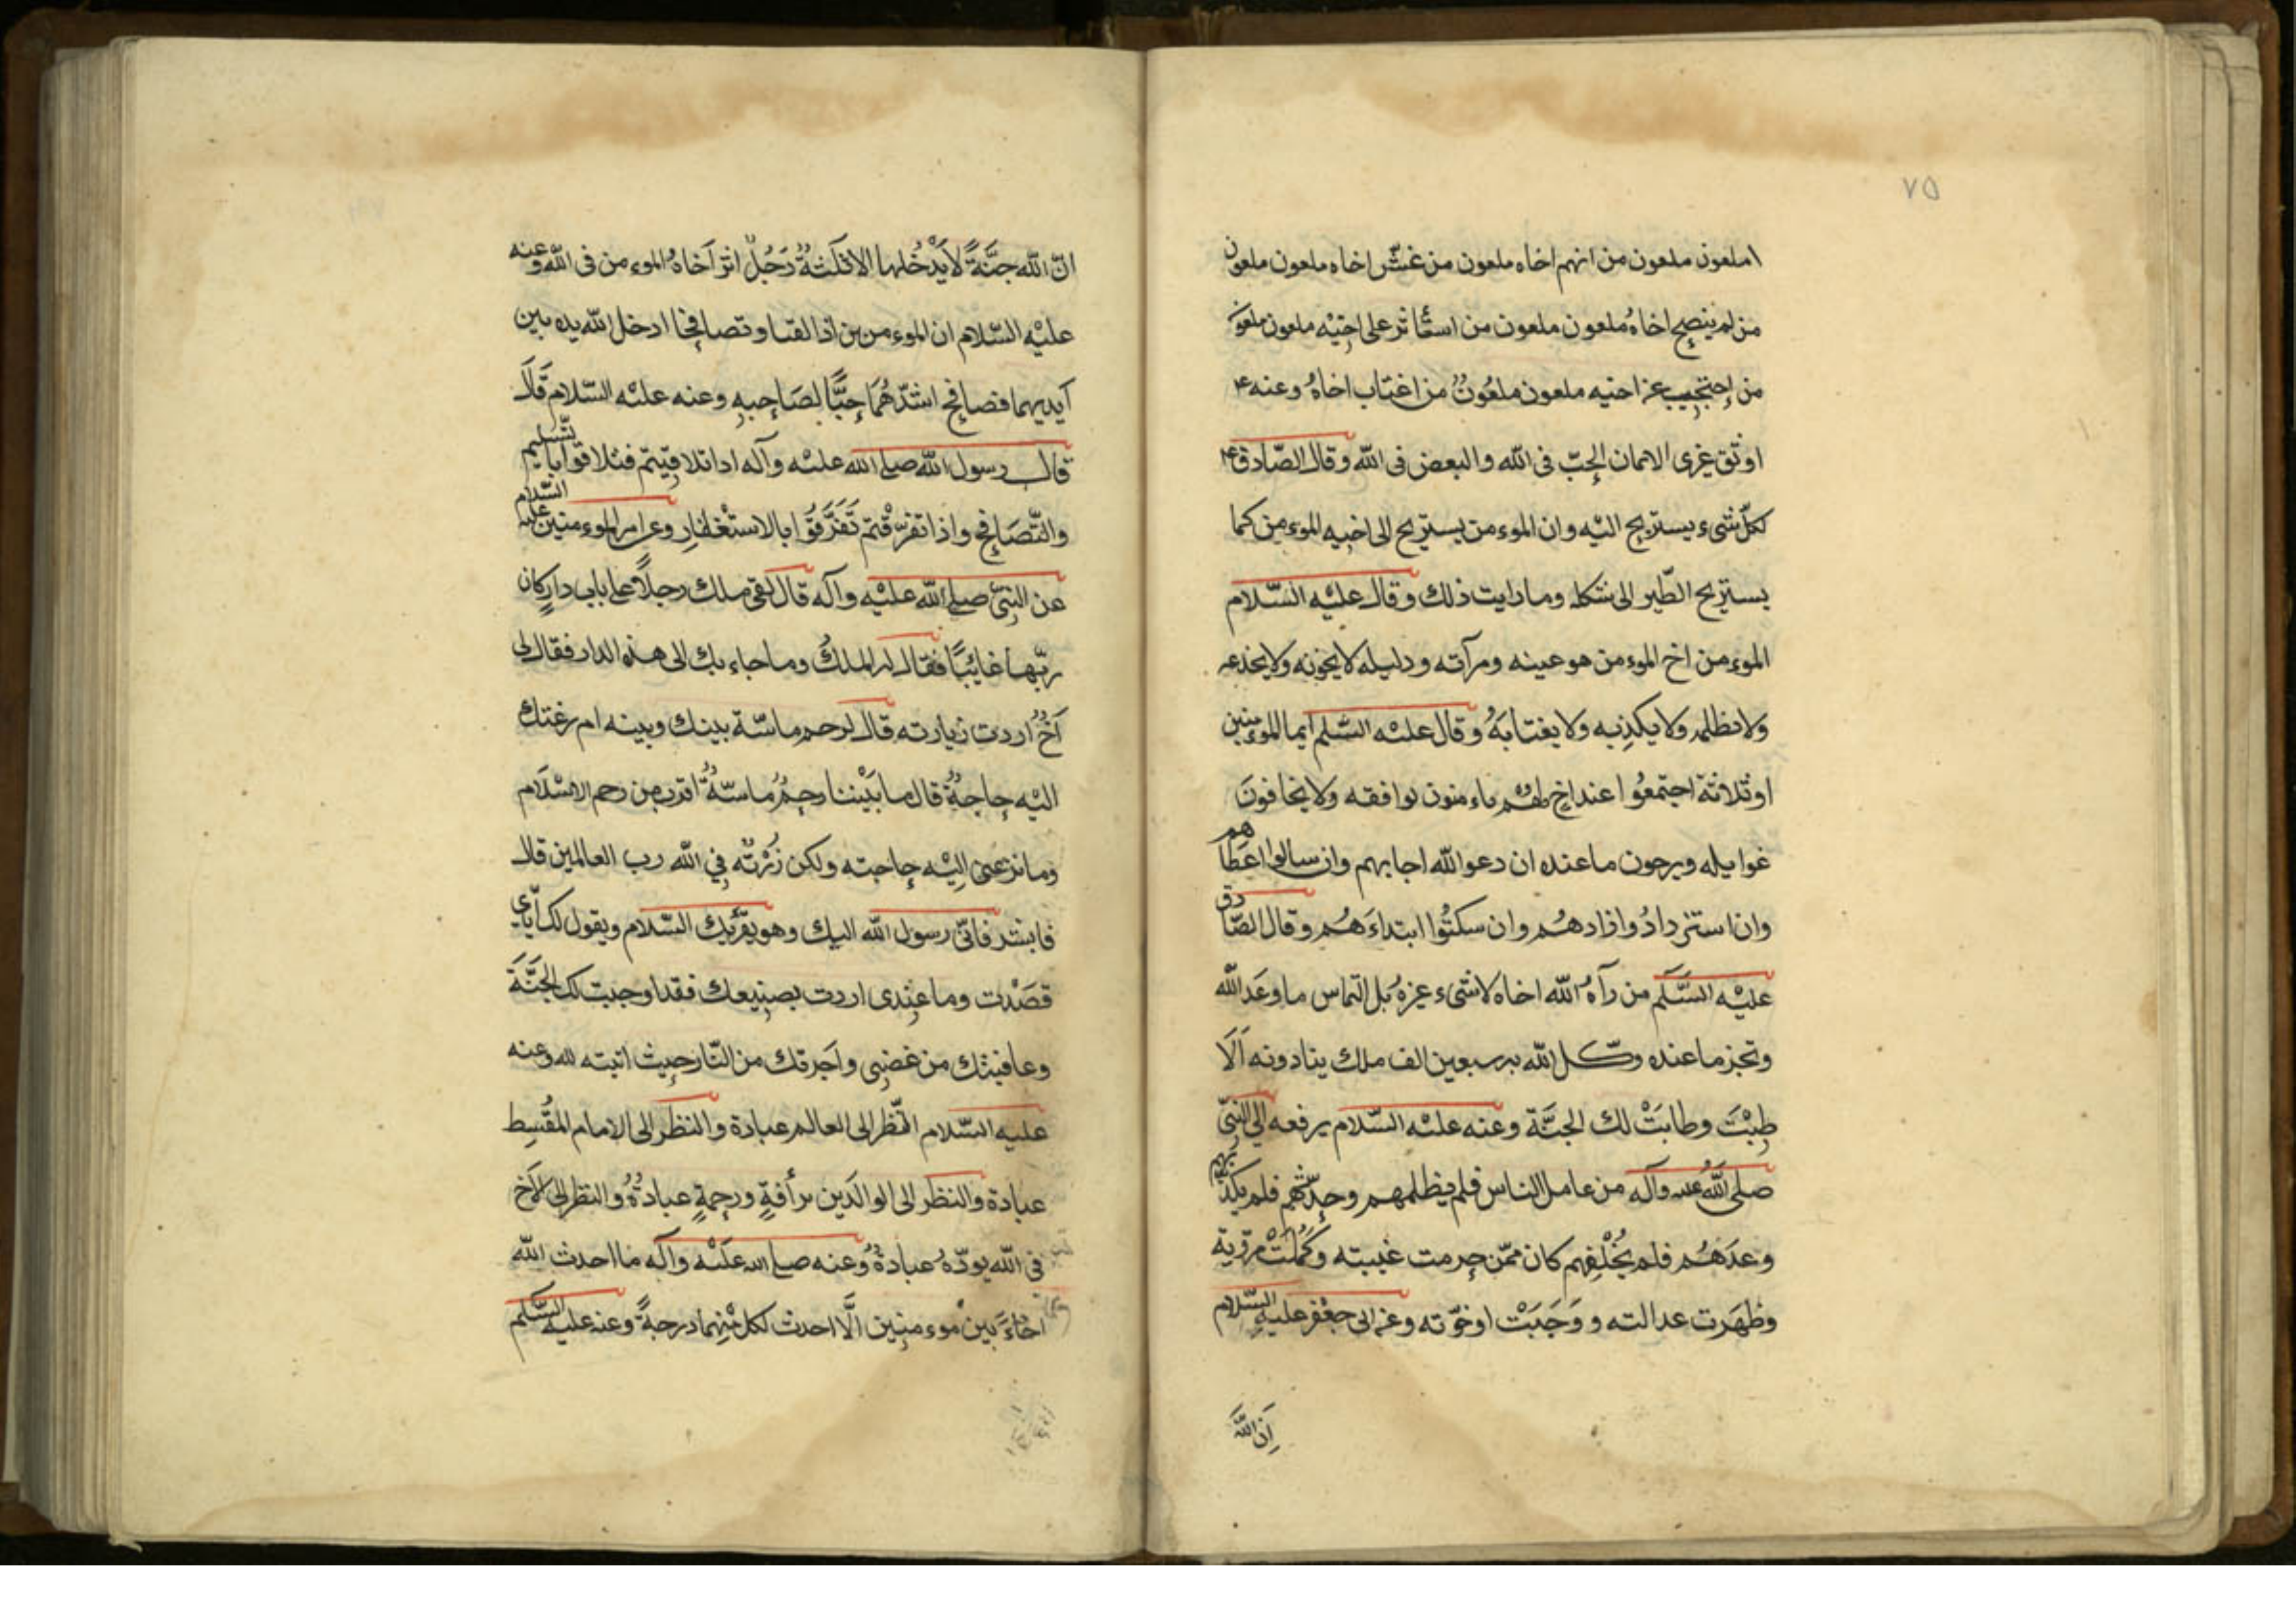 ٧٥
ملعون ملعون من اتهم اخاه ملعون من غشّ اخاه ملعون ملعون
من لم ينصح اخاهُ ملعون ملعون من استأثر على اخيْه ملعون ملعون
من إحتجب عن اخيه ملعون ملعُونٌ من اغتاب اخاهُ وعنه ع
اوثق عرى الايمان الحِبّ فى الله والبغض فى الله وقال الصّادق ع
لكلّ شىء يستريح اليْه وان الموءمن يستريح الى اخيه الموءمن كما
يستريح الطّير الى شكله ومارايت ذلك وقال عليْه السّلام
الموءمن اخ الموءمن هو عينه ومرآته ودليله لا يخونه ولا يخدعه
ولا يظلمه ولا يكذبه ولا يغتابهُ وقال عليْه السّلم ايما الموءمنين
او ثلاثة اجتمعُوا عند اخ لهم ياءمنون بوافقه ولا يخافونَ
غوايله ويرجون ما عنده ان دعوالله اجابهم وان سالوا اعطاهم
وان استزدادُوا زادهُم وان سكتُوا ابتداءَهُم وقال الصّادق
عليْه السَّلَم من رآهُ الله اخاه لا شىء غيرهُ بل التماس ما وعَد الله
وتنجز ما عنده وكّل الله به سبعين الف ملك ينادونه اَلَا
طِبْتَ وطابَتْ لك الجنَّة وعنه عليْه السّلام يرفعه الي النبىّ
صلى اللهُ عليه وآله من عامل الناس فلم يظلمهم وحدّثهم فلم يكذبهم
وعدَهُم فلم يُخْلِفهم كان ممّن حرمت غيبته وكَمُلَتْ مروّته
وظهَرت عدالته ووَجَبَتْ اوخوّته وعن ابى جعْفر عليهِ السّلام
اِنّ اللهَ
انّ الله جنَّةً لَا يَدْخُلها الا ثلثةٌ رَجُلٌ اثر اَخاهُ الموءمن فى الله وعنه
عليْه السّلام ان الموءمن بن اذا لقيا وتصافحِا ادخل الله يده بين
آيديهما فصافح اشدّهُمَا حِبًّا لِصَاحبِهِ وعنه عليْه السّلام قَالَ
قال رسول الله صلى الله عليْه وآله اذا تلاقيتم فتلاقوا بالتسليم
والتّصَافحِ واذا تفرّقْتم تَفَرَّقُوا بالاستغْفارِ وعن امير الموءمنين عليه السّلام
عن النبىّ صلى الله عليْه وآله قال لقى ملك رجلاً على باب دارٍ كان
ربّها غائبًا فقال له الملكُ وما جاء بك الى هذه الدار فقال لى
آخٌ اردت زيارته قال لرحم ماسّة بينك وبينه ام رغتك
اليْه حِاجةٌ قال ما بَيْننا رحِمٌ ماسّةٌ اقرب من رحم الاسْلَام
وما نزعنى اِليْه حِاجته ولكن زُرْتُه فِي الله رب العالمين قال
فابشر فانّى رسول الله اليك وهو يقرئك السّلام ويقول لك اِيّاىَ
قصَدْت وما عِندى اردت بصنِيعك فقد اوجبت لك الجنَّةَ
وعافيتك من غضبِى واَجرتك من النّار حِيث اتيته لله وعنه
عليه السّلام النّظر الى العالم عبادة والنظر الى الامام المقُسِط
عبادة والنظر الى الوالَدين برأفةٍ ورحِمةٍ عبادةٌ والنظر الى الاَخ
فى الله يودّهُ عبادةٌ وعنه صلى الله عليْه وآله ما احدث الله
اخاءً بين موءمنِين الَّا احدث لكل منِهما درجةً وعنه عليه السّلم